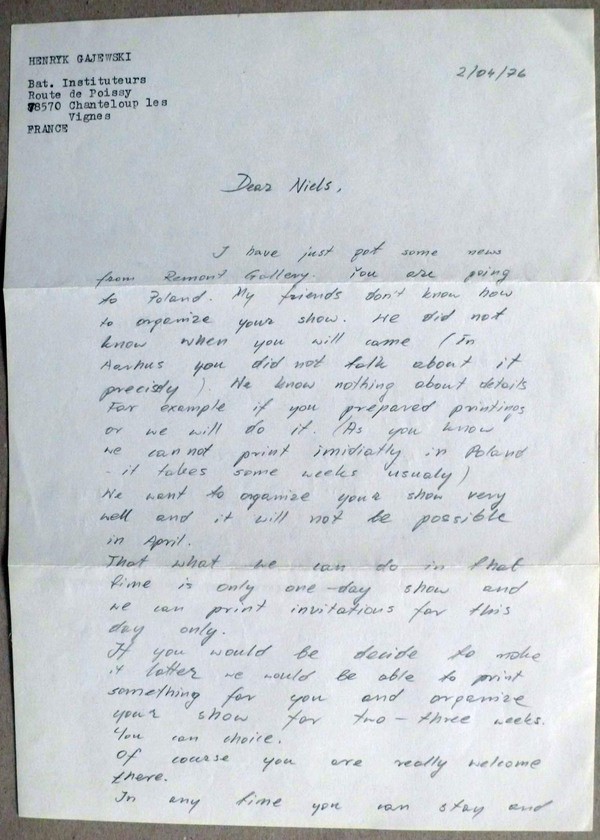 HENRYK GAJEWSKI
Bat. Instituteurs
Route de Poissy
78570 Chanteloup les
Vignes
FRANCE
2/04/76
Dear Niels,
I have just got some news
from Remont Gallery. You are going
to Poland. My friends don't know how
to organize your show. We did not
know when you will came (in
Aarhus you did not talk about it
precisely). We know nothing about details
For example if you prepared printings
or we will do it. (As you know
we can not print imidiatly in Poland
- it takes some weeks usualy)
We want to organize your show very
well and it will not be possible
in April.
That what we can do in that
time is only one-day show and
we can print invitations for this
day only.
If you would be decide to make
it latter we would be able to print
something for you and organize
your show for two-three weeks.
You can choice.
Of course you are really welcome
there.
In any time you can stay and